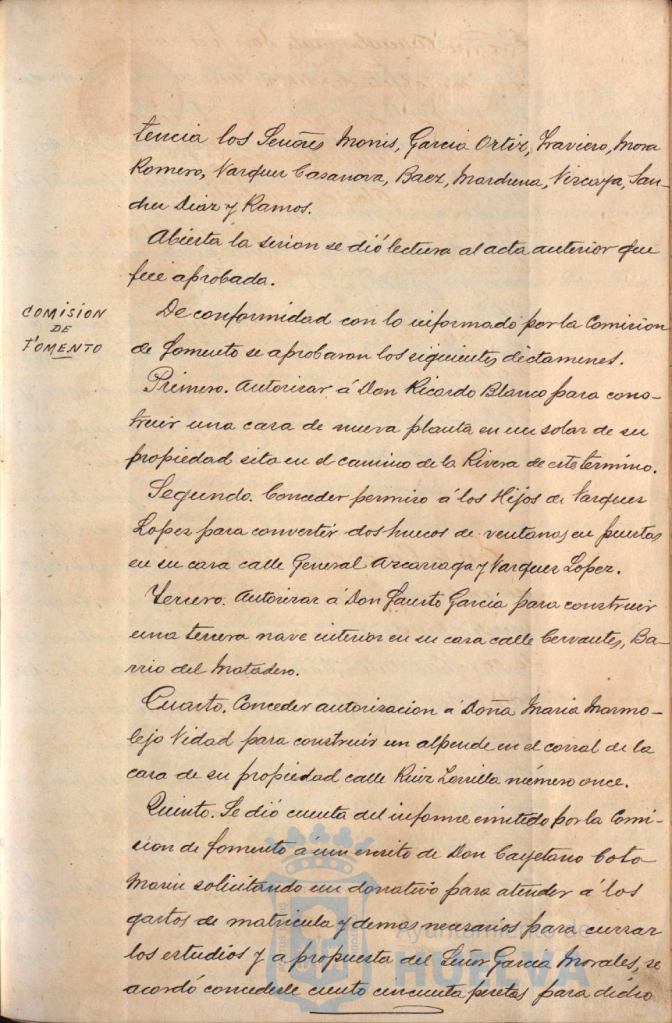 tencia los Señores Monis, Garcia Ortiz, Traviero, Mora
Romero, Vazquez Casanova, Baez, Mardrena, Vizcaya, San-
chez Diaz y Ramos.
Abierta la sesion se dió lectura al acta anterior que
fué aprobada.
COMISION
DE
FOMENTO
De conformidad con lo informado por la Comision
de Fomento se aprobaron los siguientes dictamenes.
Primero. Autorizar á Don Ricardo Blanco para cons-
truir una casa de nueva planta en un solar de su
propiedad sita en el camino de la Rivera de este termino.
Segundo. Conceder permiso á los Hijos de Vazquez
Lopez para convertir dos huecos de ventanas en puertas
en su casa calle General Azcarraga y Vazquez Lopez.
Tercero. Autorizar á Don Fausto Garcia para construir
una tercera nave interior en su casa calle Cervantes, Ba-
rrio del Matadero.
Cuarto. Conceder autorizacion á Doña Maria Marmo-
lejo Vidad para construir un alpende en el corral de la
casa de su propiedad calle Ruiz Zorrilla número once.
Quinto. Se dió cuenta del informe emitido por la Comi-
sion de Fomento á un escrito de Don Cayetano Coto
Marin solicitando un donativo para atender á los
gastos de matricula y demas necesarios para cursar
los estudios y a propuesta del Señor Garcia Morales, se
acordó concederle ciento cincuenta pesetas para dicho
Ayuntamiento de
HUELVA